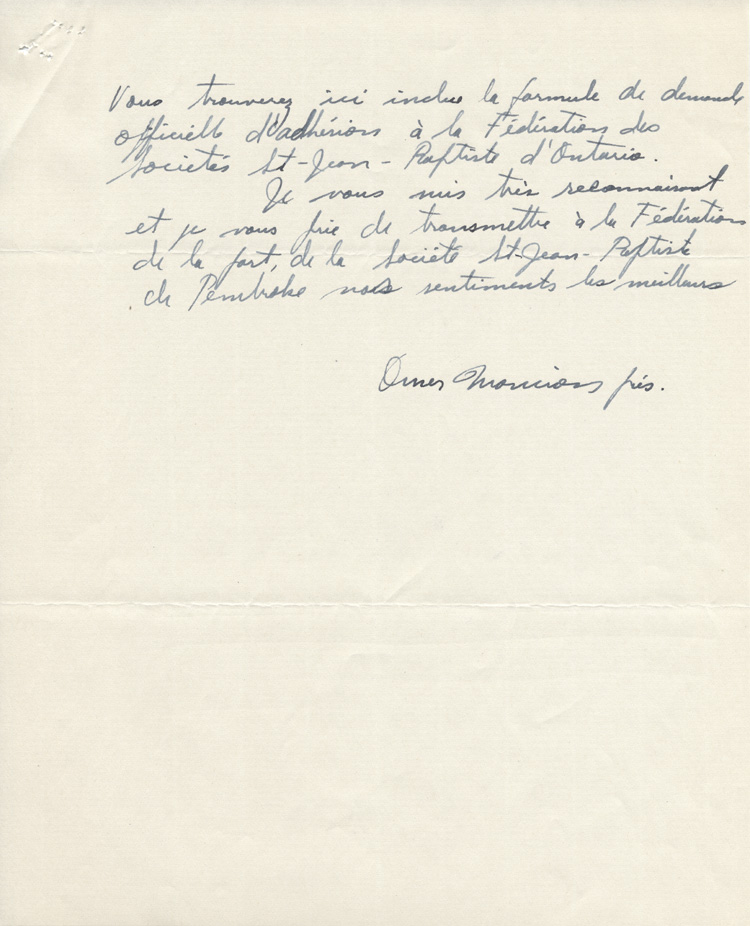 Vous trouverez ici inclus la formule de demande
officielle d'adhésion à la Fédération des
Sociétés St-Jean-Baptiste d'Ontario.
Je vous suis très reconnaissant
et je vous prie de transmettre à la Fédération
de la part, de la Société St-Jean-Baptiste
de Pembroke nos sentiments les meilleurs
Omer prés.